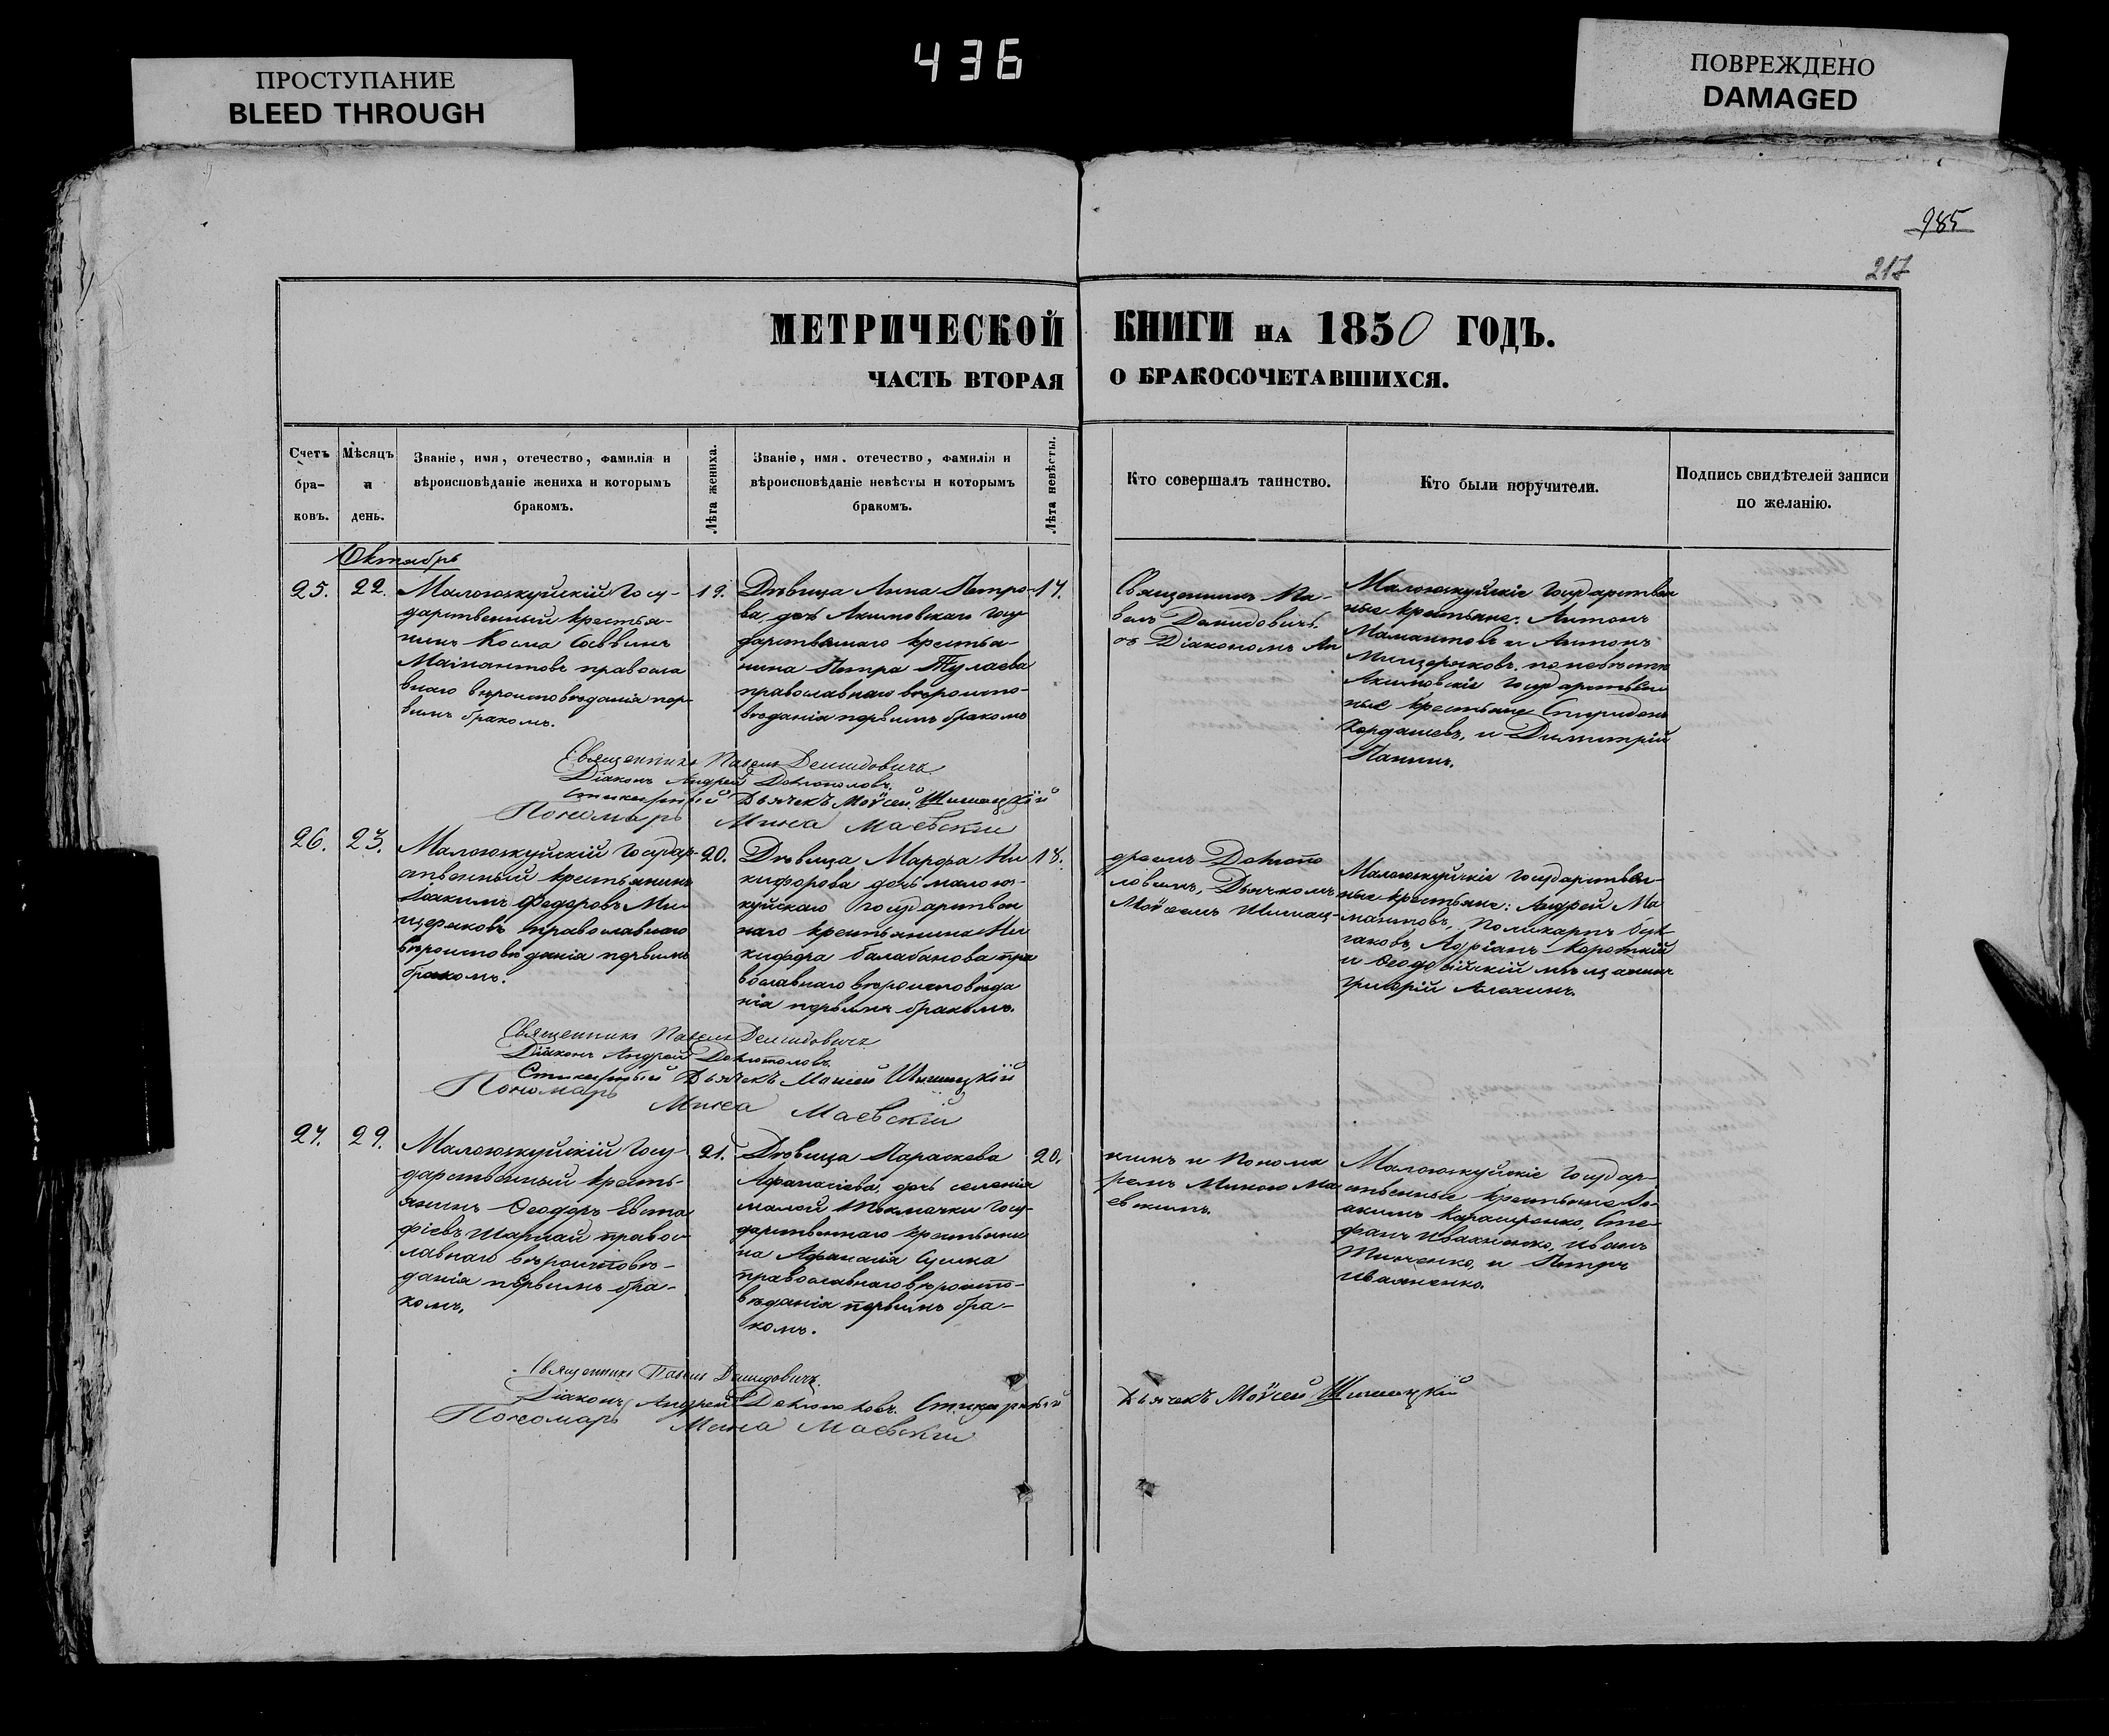 436
ПРОСТУПАНИЕ
BLEED THROUGH
ПОВРЕЖДЕНО
DAMAGED
985
217
МЕТРИЧЕСКОЙ КНИГИ НА 1850 ГОДЪ.
ЧАСТЬ ВТОРАЯ О БРАКОСОЧЕТАВШИХСЯ.
Счетъ бра-ковъ.
Мѣсяцъ и день.
Званіе, имя, отечество, фамилія и
вѣроисповѣданіе жениха и которымъ
бракомъ.
Лѣта жениха.
Званіе, имя. отечество, фамилія и
вѣроисповѣданіе невѣсты и которымъ
бракомъ.
Лѣта невѣсты.
Кто совершалъ таинство.
Кто были поручители.
Подпись свидѣтелей записи
по желанію.
Октябрь
25.
22.
Малоюзкуйскій Госу-
дарственный крестья-
нинъ Косма Саввинъ
Мамантовъ правосла
внаго вѣроисповѣданія пер-
вымъ бракомъ.
19.
Дѣвица Анна Петро-
ва, дочь Акимовскаго Госу
дарственнаго крестья-
нина Петра Тулаева
православнаго вѣроиспо-
вѣданія первымъ бракомъ
17.
Священникъ Па-
велъ Демидовичъ.
съ Діакономъ Ан
Малоюзкуйскіе Государствен
ные крестьяне: Антонъ
Мамантовъ и Антонъ
Мищеряковъ. по невѣстѣ
Акимовскіе Государствен
ные крестьяне Спиридонъ
Кордашевъ, и Димитрій
Панинъ.
Священникъ Павелъ Демидовичъ
Діаконъ Андрей
Стихарный Дьячекъ Моѵсей Шишацкій
Пономарь Мина Маевскій
26.
23.
Малоюзкуйскій Государ-
ственный крестьянинъ
Іоакимъ Федоровъ Ми
щеряковъ православнаго
вѣроисповѣданія первымъ
бракомъ.
20.
Дѣвица Марфа Ни
кифорова дочь малоюз-
куйскаго Государствен
наго крестьянина Ни
кифора Балабанова пра
вославнаго вѣроисповѣда
нія первымъ бракомъ.
18.
дреемъ
ловымъ, Дьячкомъ
Моѵсеемъ Шишац-
Малоюзкуйскіе Государствен-
ные крестьяне: Андрей Ма
мантовъ, Поликарпъ
Адріанъ Короткій
и Феодосійскій мѣщанинъ
Григорій Алехинъ.
Священникъ Павелъ Демидовичъ
Діаконъ Андрей
Стихарный Дьячекъ Моисей Шишацкій
Пономарь
Мина Маевскій
27.
29.
Малоюзкуйскій Госу-
дарственный кресть-
янинъ Феодоръ Евста
фіевъ Шаргай правос
лавнаго вѣроисповѣ-
данія первымъ бра-
комъ.
21.
Дѣвица Параскева
Афанасіева, дочь селенія
малой Токмачки Госу-
дарственнаго крестьяни
на Афанасія Сушка
православнаго вѣроиспо-
вѣданія первымъ бра-
комъ.
20.
кимъ и Понома
ремъ Миною Ма
евскимъ.
Малоюзкуйскіе Государ-
ственные крестьяне
Сте-
фанъ Иваненко, Иванъ
и Петръ
Иваненко.
Священникъ Павелъ Демидовичъ.
Діаконъ Андрей Стихарный Дьячекъ Моѵсей Шишацкій
Пономарь Мина Маевскій